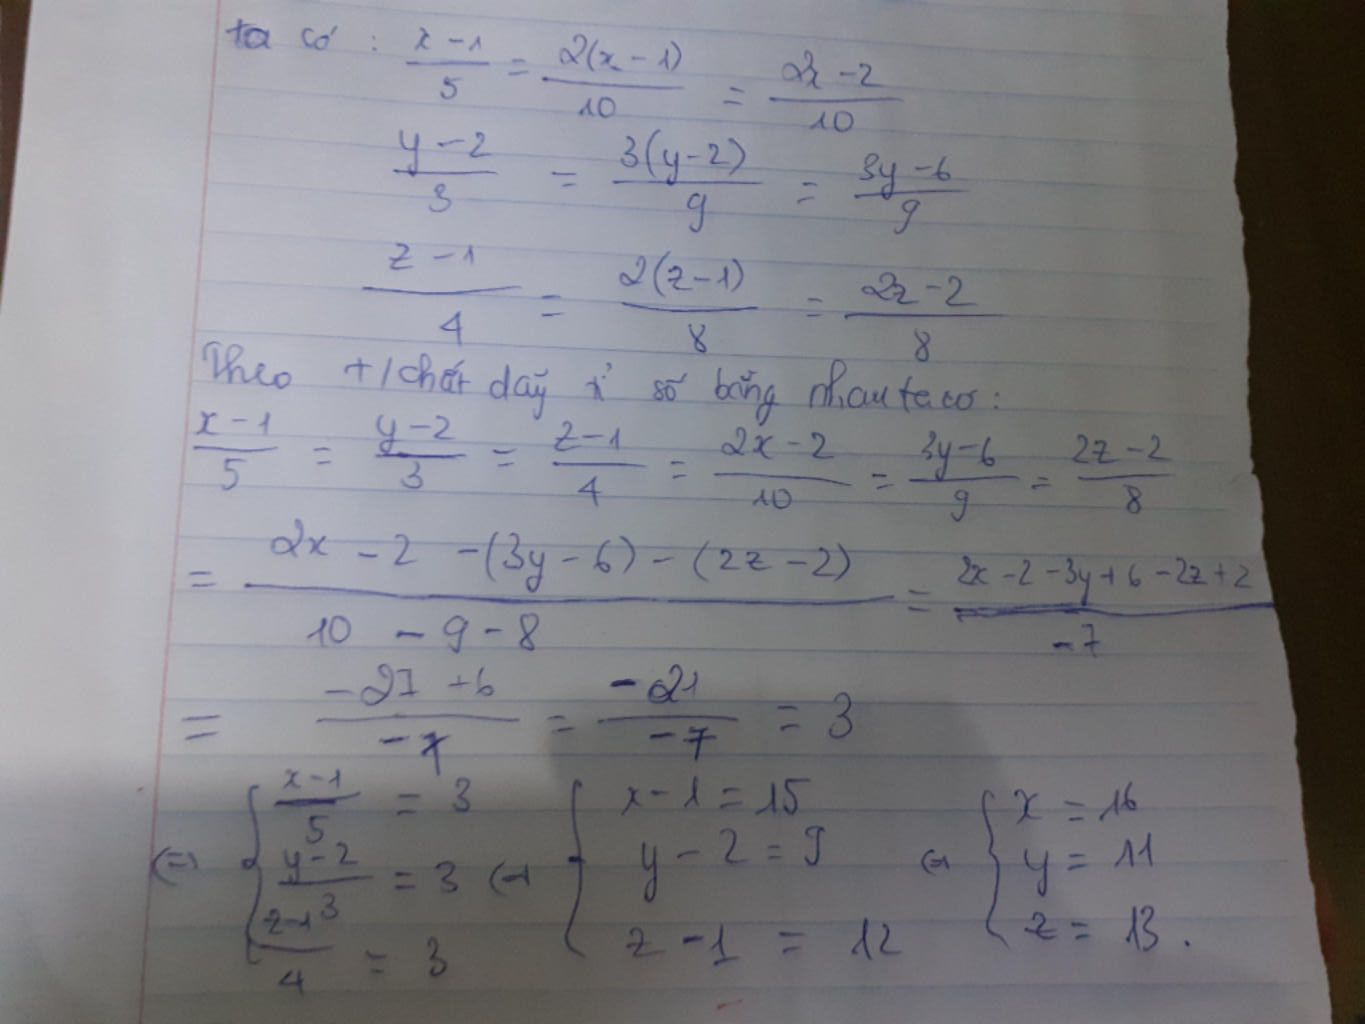 ta có : x-1/5 = 2(x-1)/10 = 2x-2/10
y-2/3 = 3(y-2)/9 = 3y-6/9
z-1/4 = 2(z-1)/8 = 2z-2/8
Theo t/chất dãy tỉ số bằng nhau ta có :
x-1/5 = y-2/3 = z-1/4 = 2x-2/10 = 3y-6/9 = 2z-2/8
= 2x-2-(3y-6)-(2z-2)/10-9-8 = 2x-2-3y+6-2z+2/-7
= -27+6/-7 = -21/-7 = 3
⇔ { x-1/5 = 3 ⇔ { x-1=15 ⇔ { x=16
y-2/3 = 3 y-2=9 y=11
z-1/4 = 3 z-1=12 z=13.